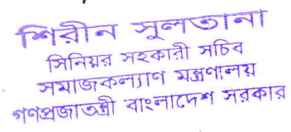 শিরীন সুলতানা
সিনিয়র সহকারী সচিব
সমাজকল্যাণ মন্ত্রণালয়
গণপ্রজাতন্ত্রী বাংলাদেশ সরকার